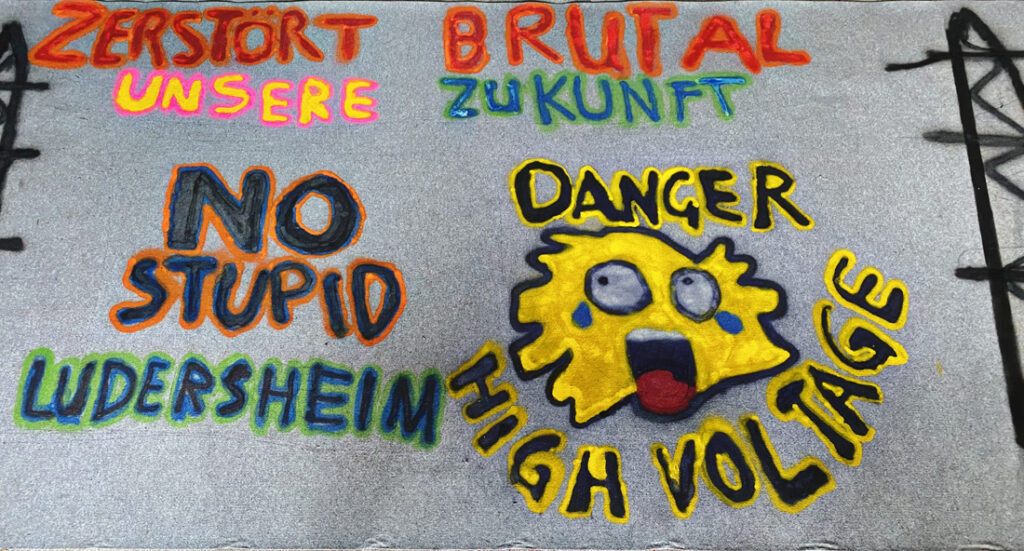 ZERSTÖRT BRUTAL
UNSERE ZUKUNFT
NO
STUPID
LUDERSHEIM
DANGER
HIGH VOLTAGE